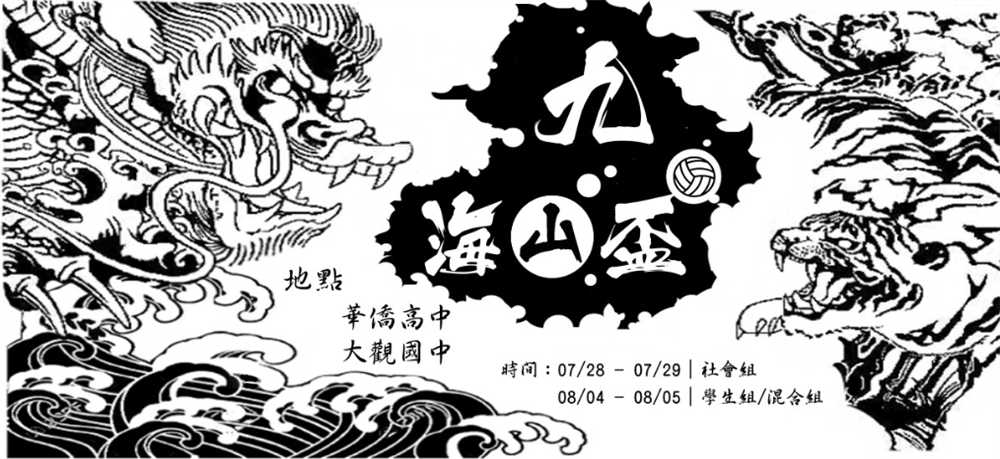 九
海山盃
地點
華僑高中
大觀國中
時間：07/28 - 07/29｜社會組
08/04 - 08/05｜學生組/混合組